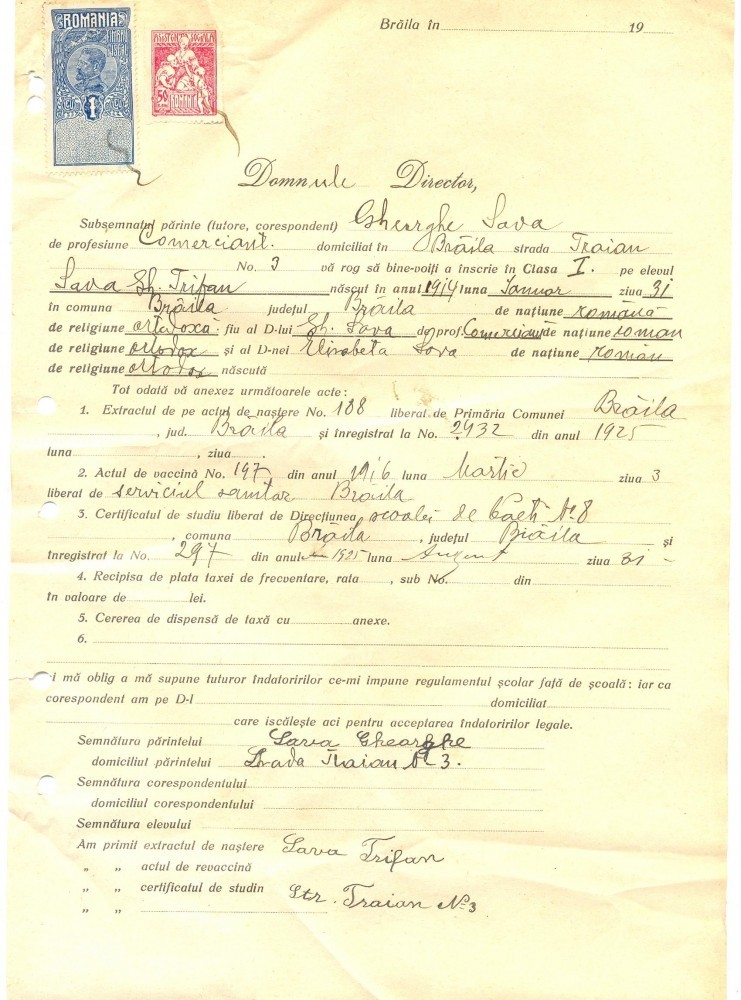 ROMANIA
TIMBRU FISCAL
1
ASISTENTA SOCIALA
50
ROMANIA
Brăila în 19
Domnule Director,
Subsemnatul părinte (tutore, corespondent) Gheorghe Sava
de profesiune Comerciant. domiciliat în Brăila strada Traian
No. 3 vă rog să bine-voiți a înscrie în Clasa I. pe elevul
Sava Gh. Trifan născut în anul 1914 luna Ianuar ziua 31
în comuna Brăila județul Brăila de națiune română
de religiune ortodoxă fiu al D-lui Gh. Sava de prof. Comerciant de națiune roman
de religiune ortodox și al D-nei Elisabeta Sava de națiune român
de religiune ortodox născută
Tot odată vă anexez următoarele acte:
1. Extractul de pe actul de naștere No. 188 liberat de Primăria Comunei Brăila
, jud. Braila și înregistrat la No. 2432 din anul 1925
luna , ziua .
2. Actul de vaccină No. 197 din anul 1916 luna Martie ziua 3
liberat de serviciul sanitar Brăila
3. Certificatul de studiu liberat de Direcțiunea scoalei de Baeti No 8
, comuna Brăila , județul Brăila și
înregistrat la No. 297 din anul 1925 luna August ziua 31 -
4. Recipisa de plata taxei de frecventare, rata , sub No. din
în valoare de lei.
5. Cererea de dispensă de taxă cu anexe.
6.
și mă oblig a mă supune tuturor îndatoririlor ce-mi impune regulamentul școlar față de școală: iar ca
corespondent am pe D-l domiciliat
care iscălește aci pentru acceptarea îndatoririlor legale.
Semnătura părintelui Sava Gheorghe
domiciliul părintelui Strada Traian No 3.
Semnătura corespondentului
domiciliul corespondentului
Semnătura elevului
Am primit extractul de naștere Sava Trifan
„ „ actul de revaccină
„ „ certificatul de studiu Str. Traian No 3
„ „